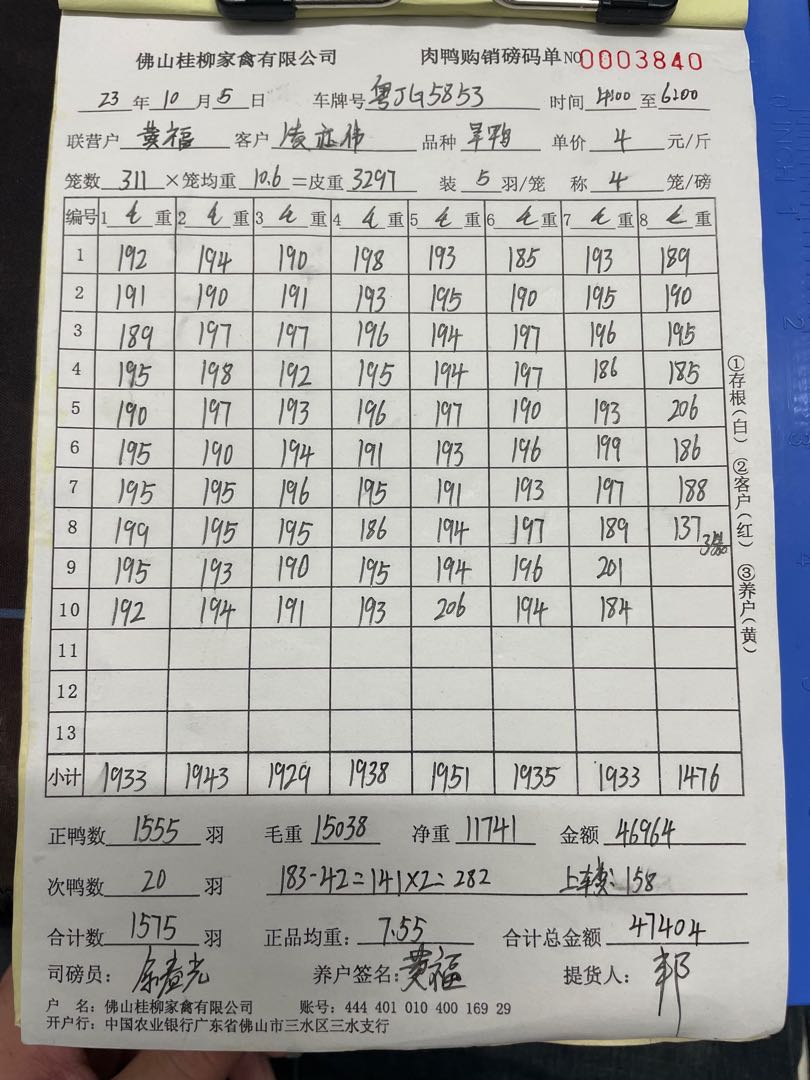 佛山桂柳家禽有限公司 肉鸭购销磅码单 NO 0003840
23 年 10 月 5 日 车牌号 粤JG5853 时间 4:00 至 6:00
联营户 黄福 客户 品种 旱鸭 单价 4 元/斤
笼数 311 ×笼均重 10.6 =皮重 3297 装 5 羽/笼 称 4 笼/磅
编号 1 毛 重 2 毛 重 3 毛 重 4 毛 重 5 毛 重 6 毛 重 7 毛 重 8 毛 重
1 192 194 190 198 193 185 193 189
2 191 190 191 193 195 190 195 190
3 189 197 197 196 194 197 196 195
4 195 198 192 195 194 197 186 185
5 190 197 193 196 197 190 193 206
6 195 190 194 191 193 196 199 186
7 195 195 196 195 191 193 197 188
8 199 195 195 186 194 197 189 137 3笼
9 195 193 190 195 194 196 201
10 192 194 191 193 206 194 184
11
12
13
小计 1933 1943 1929 1938 1951 1935 1933 1476
正鸭数 1555 羽 毛重 15038 净重 11741 金额 46964
次鸭数 20 羽 183-42=141×2=282 上车费:158
合计数 1575 羽 正品均重: 7.55 合计总金额 47404
司磅员: 养户签名: 黄福 提货人:
户 名: 佛山桂柳家禽有限公司 账号: 444 401 010 400 169 29
开户行: 中国农业银行广东省佛山市三水区三水支行
①存根(白) ②客户(红) ③养户(黄)